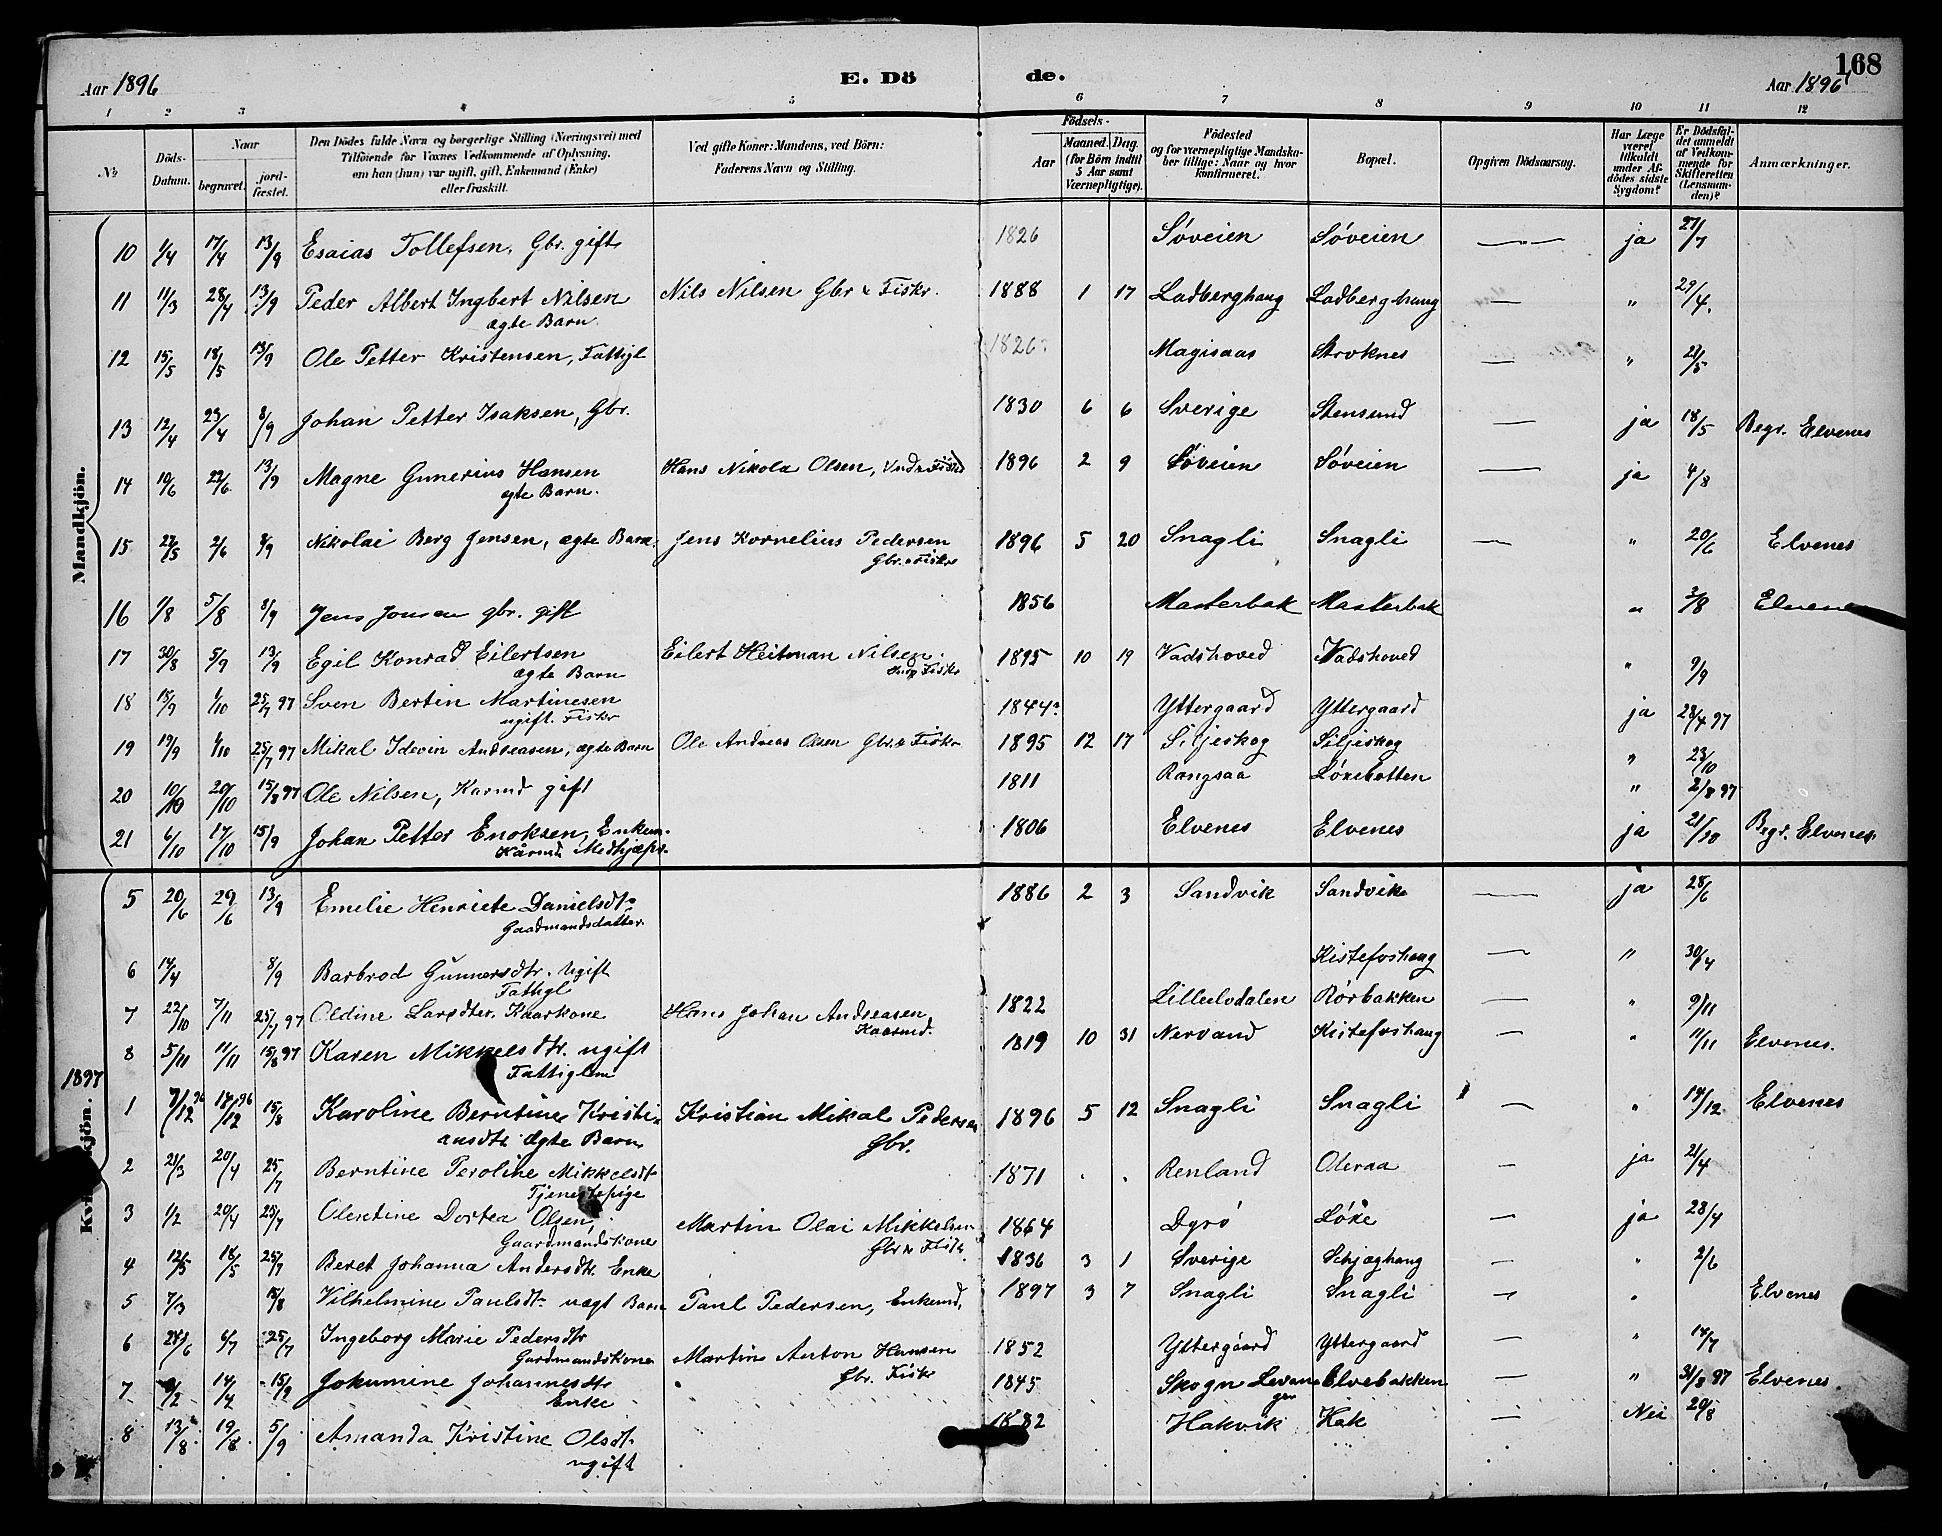 168
Aar 1896 E. Dö de. Aar 1896
1 2 3 4 5 6 7 8 9 10 11 12
№ Döds-Datum. Naar begravet. jord-fæstet. Den Dödes fulde Navn og borgerlige Stilling (Næringsvei) med Tilföiende for Voxnes Vedkommende af Oplysning, om han (hun) var ugift, gift, Enkemand (Enke) eller fraskilt. Ved gifte Koner: Mandens, ved Börn: Faderens Navn og Stilling. Födsels- Aar Maaned. Dag. (for Börn indtil 5 Aar samt Værnepligtige). Födested og for værnepligtige Mandskaber tillige: Naar og hvor konfirmeret. Bopæl. Opgiven Dödsaarsag. Har Læge været tilkaldt under Afdödes sidste Sygdom? Er Dödsfaldet anmeldt af Vedkommende for Skifteretten (Lensmanden)? Anmærkninger.
Mandkjön.
10 1/4 17/4 13/9 Esaias Tollefsen, Gbr. gift 1826 Söveien Söveien — ja 27/7
11 11/3 28/4 13/9 Peder Albert Ingbert Nilsen Nils Nilsen Gbr & Fiskr. 1888 1 17 Ladberghaug Ladberghaug — " 29/4.
ægte Barn.
12 15/5 18/5 13/9 Ole Petter Kristensen, Fattigl 1826 Magisaas Stroknes — " 22/5
13 12/4 29/4 8/9 Johan Petter Isaksen, Gbr. 1830 6 6 Sverige Stensund — ja 18/5 Begr. Elvenes
14 10/6 22/6 13/9 Magne Gunerius Hansen Hans Nikolai Olsen, 1896 2 9 Söveien Söveien — ja 4/8
ægte Barn.
15 22/5 2/6 8/9 Nikolai Berg Jensen, ægte Barn. Jens Kornelius Pedersen 1896 5 20 Snagli Snagli — " 20/6 Elvenes
Gbr. & Fiskr
16 1/8 5/8 8/9 Jens Jonsen gbr. gift 1856 Masterbak Masterbak " 3/8 Elvenes
17 30/8 5/9 13/9 Egil Konrad Eilertsen Eilert Heitman Nilsen. 1895 10 19 Vadshoved Vadshoved " 9/9
ægte Barn Fiskr
18 15/9 1/10 25/7 97 Sven Bertin Martinesen 1844 Yttergaard Yttergaard ja 28/4 97
ugift. Fiskr
19 19/9 1/10 25/7 97 Mikal Idevin Andreasen, ægte Barn Ole Andreas Olsen Gbr. & Fiskr 1895 12 17 Siljeskog Siljeskog " 23/10
20 10/10 20/10 15/8 97 Ole Nilsen, Kaarmd gift 1811 Rangsaa Löxebotten " 2/8 97
21 6/10 17/10 15/9 Johan Petter Enoksen, Enkem. 1806 Elvenes Elvenes ja 21/10 Begr. Elvenes.
Kårmd. Medhjæpr.
Kvindkjön.
5 20/6 29/6 13/9 Emelie Henriete Danielsdtr 1886 2 3 Sandvik Sandvik — ja 28/6
Gaardmandsdatter.
6 14/4 8/9 Barbrod Gunnersdtr. Ugift Kistefoshaug — " 30/4
Fattigl
7 22/10 7/11 25/7 97 Oldine Larsdtter. Kaarkone Hans Johan Andreasen, 1822 Lilleelvdalen Rörbakken " 9/11
Kaarmd.
8 5/11 11/11 15/8 97 Karen Mikkelsdtr. ugift 1819 10 31 Nervand Kistefoshaug " 11/11 Elvenes.
Fattiglem
1897
1 7/12 96 17/12 96 15/8 Karoline Berntine Kristi- Kristian Mikal Pedersen 1896 5 12 Snagli Snagli — " 17/12 Elvenes
ansdtr ægte Barn Gbr.
2 21/3 20/4 25/7 Berntine Peroline Mikkelsdtr 1871 Renland Oleraa — ja 21/4
Tjenestepige
3 1/2 20/4 25/7 Olentine Dortea Olsen, Martin Olai Mikkelsen 1864 Dyrö Löxe — ja 28/4
Gaardmandskone Gbr & Fiskr
4 12/5 18/5 25/7 Beret Johanna Andersdtr. Enke 1836 3 1 Sverige Schjæghaug — " 2/6
5 7/3 15/8 Vilhelmine Paulsdtr uægt Barn Paul Pedersen, Enkemd. 1897 3 7 Snagli Snagli — " Elvenes
6 28/6 6/7 25/7 Ingeborg Marie Pedersdtr Martin Anton Hansen 1852 Yttergaard Yttergaard — " 17/7
Gardmandskone Gbr. Fiskr
7 9/2 14/4 15/9 Jokumine Johannesdtr 1845 Skogn Levanger Elvebakken — " 31/8 97 Elvenes.
Enke
8 13/8 19/8 5/9 Amanda Kristine Olsdtr 1882 Hakvik Hak — Nei 20/8
ugift